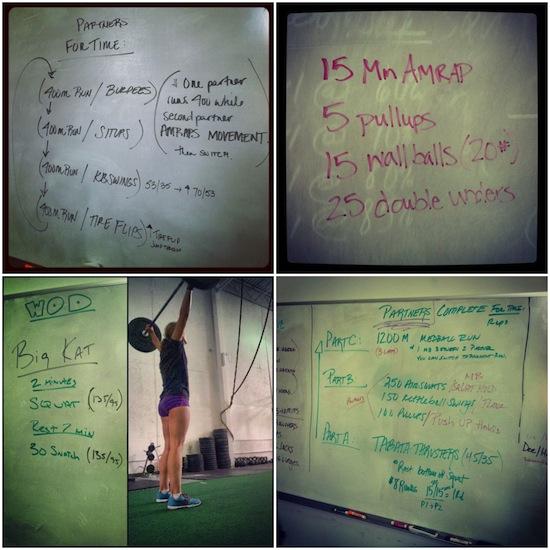 PARTNERS
FOR TIME:
400m RUN / BURPEES
400m RUN / SITUPS
400m RUN / KB SWINGS 53/35 → 70/53
400m RUN / TIRE FLIPS
One partner
runs 400 while
second partner
AMRAPS MOVEMENT.
then SWITCH.
15 Min AMRAP
5 pullups
15 wall balls (20#)
25 double unders
WOD
Big KAT
2 minutes
SQUAT (135/95)
Rest 2 min
30 Snatch (135/95)
PARTNERS COMPLETE FOR TIME:
Reps
PART C: 1200 M MEDBALL RUN
PART B 250 AIR SQUATS /
150 KETTLEBELL SWINGS /
100 PULLUPS / PUSH UP
PART A: TABATA THRUSTERS / 45/35
Rest bottom of Squat
8 Rounds 15/15
P1 → P2